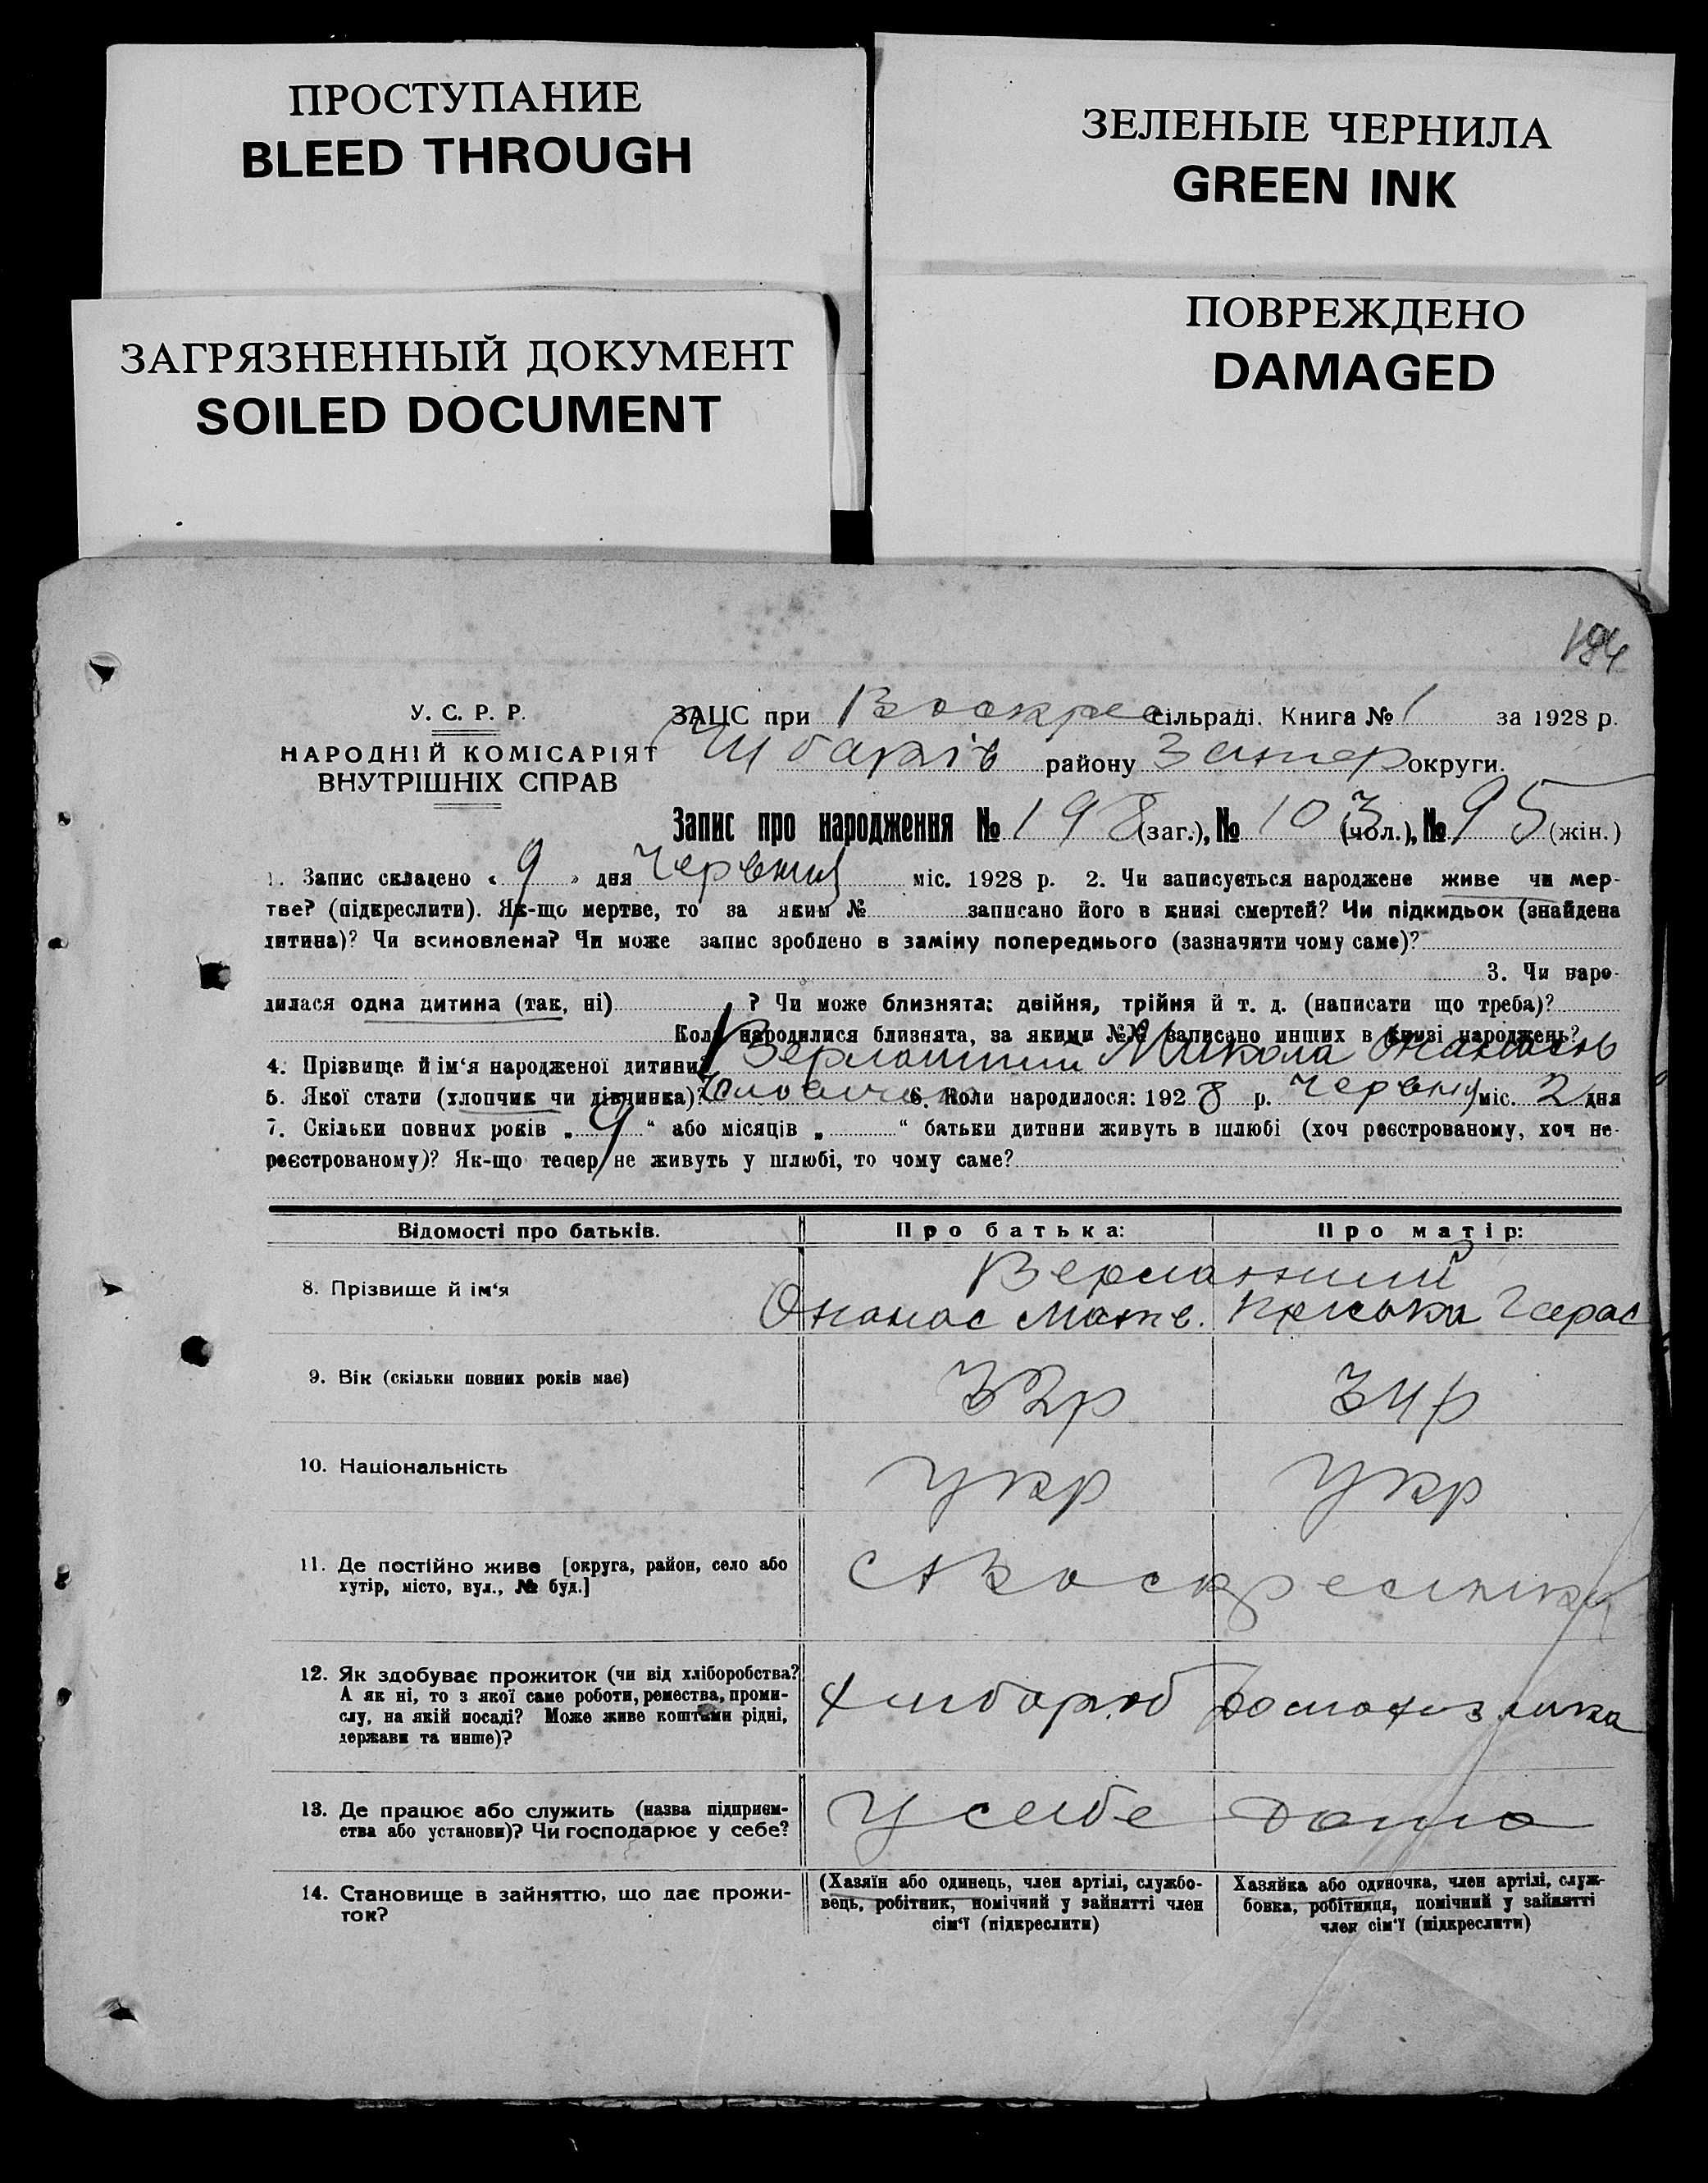 ПРОСТУПАНИЕ
BLEED THROUGH
ЗЕЛЕНЫЕ ЧЕРНИЛА
GREEN INK
ЗАГРЯЗНЕННЫЙ ДОКУМЕНТ
SOILED DOCUMENT
ПОВРЕЖДЕНО
DAMAGED
194
У. С. Р. Р.
НАРОДНІЙ КОМІСАРІЯТ
ВНУТРІШНІХ СПРАВ
ЗАЦС при Воскрес сільраді. Книга № 1 за 1928 р.
району Запор округи.
Запис про народження № 198 (заг.), № 103 (чол.), № 95 (жін.)
1. Запис складено « 9 » дня Червня міс. 1928 р. 2. Чи записується народжене живе чи мер-
тве? (підкреслити). Як-що мертве, то за яким № записано його в книзі смертей? Чи підкидьок (знайдена
дитина)? Чи всиновлена? Чи може запис зроблено в заміну попереднього (зазначити чому саме)?
3. Чи наро-
дилася одна дитина (так, ні) ? Чи може близнята: двійня, трійня й т. д. (написати що треба)?
Коли народилися близнята, за якими №№ записано инших в книзі народжень?
4. Прізвище й ім'я народженої дитини Микола
5. Якої стати (хлопчик чи дівчинка)? 6. Коли народилося: 1928 р. Червня міс. 2 дня
7. Скільки повних років „ 9 “ або місяців „ “ батьки дитини живуть в шлюбі (хоч реєстрованому, хоч не-
реєстрованому)? Як-що тепер не живуть у шлюбі, то чому саме?
Відомості про батьків.
Про батька:
Про матір:
8. Прізвище й ім'я
Опанас Матв. Приська Герас
9. Вік (скільки повних років має)
32р
34р
10. Національність
Укр
Укр
11. Де постійно живе [округа, район, село або
хутір, місто, вул., № буд.]
12. Як здобуває прожиток (чи від хліборобства?
А як ні, то з якої саме роботи, ремества, проми-
слу, на якій посаді? Може живе коштами рідні,
держави та инше)?
хлібороб
13. Де працює або служить (назва підприєм-
ства або установи)? Чи господарює у себе?
У себе
дома
14. Становище в зайняттю, що дає прожи-
ток?
(Хазяїн або одинець, член артілі, службо-
вець, робітник, помічний у зайнятті член
сім'ї (підкреслити)
Хазяйка або одиночка, член артілі, служ-
бовка, робітниця, помічний у зайнятті
член сім'ї (підкреслити)